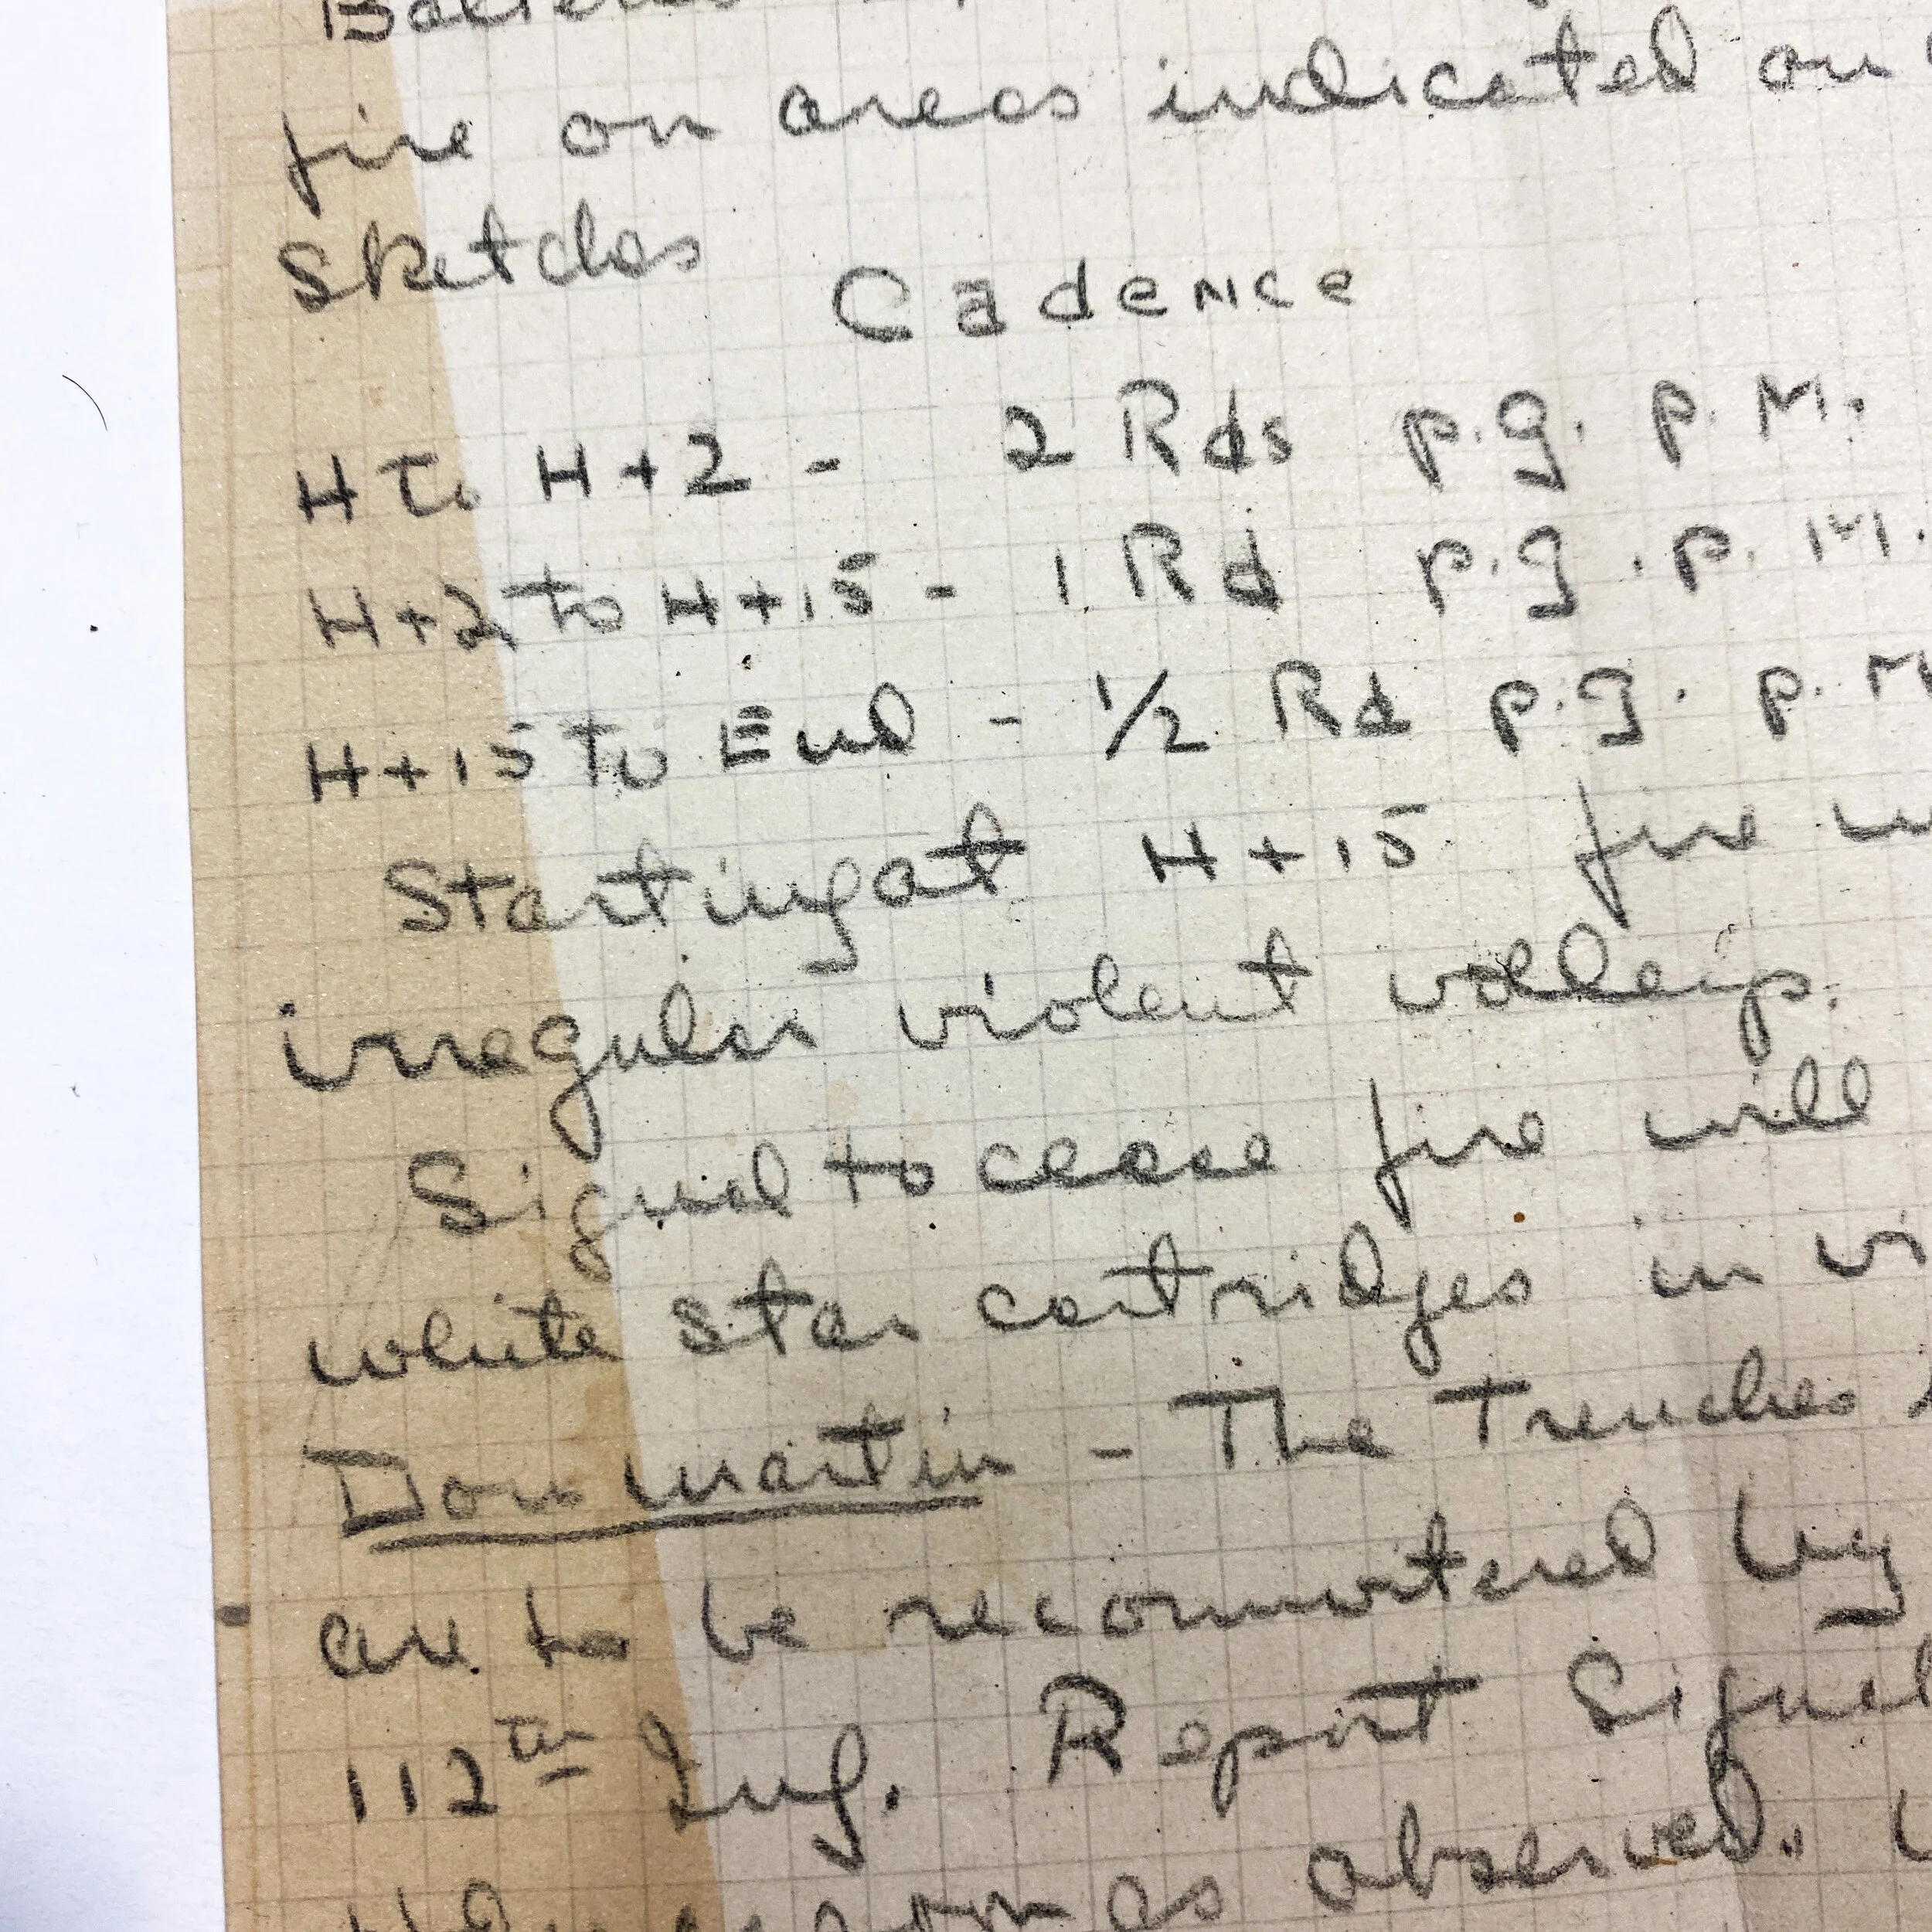 fire on areas indicated on
Sketches
Cadence
H to H+2 - 2 Rds p.g. p.M.
H+2 to H+15 - 1 Rd p.g. p.M.
H+15 to End - 1/2 Rd p.g. p.M
Starting at H+15 fire
irregular violent volleys.
Signal to cease fire will
white star cartridges in
Dommartin - The Trenches
are to be reconnoitered by
112th Inf. Report Signal
as observed.